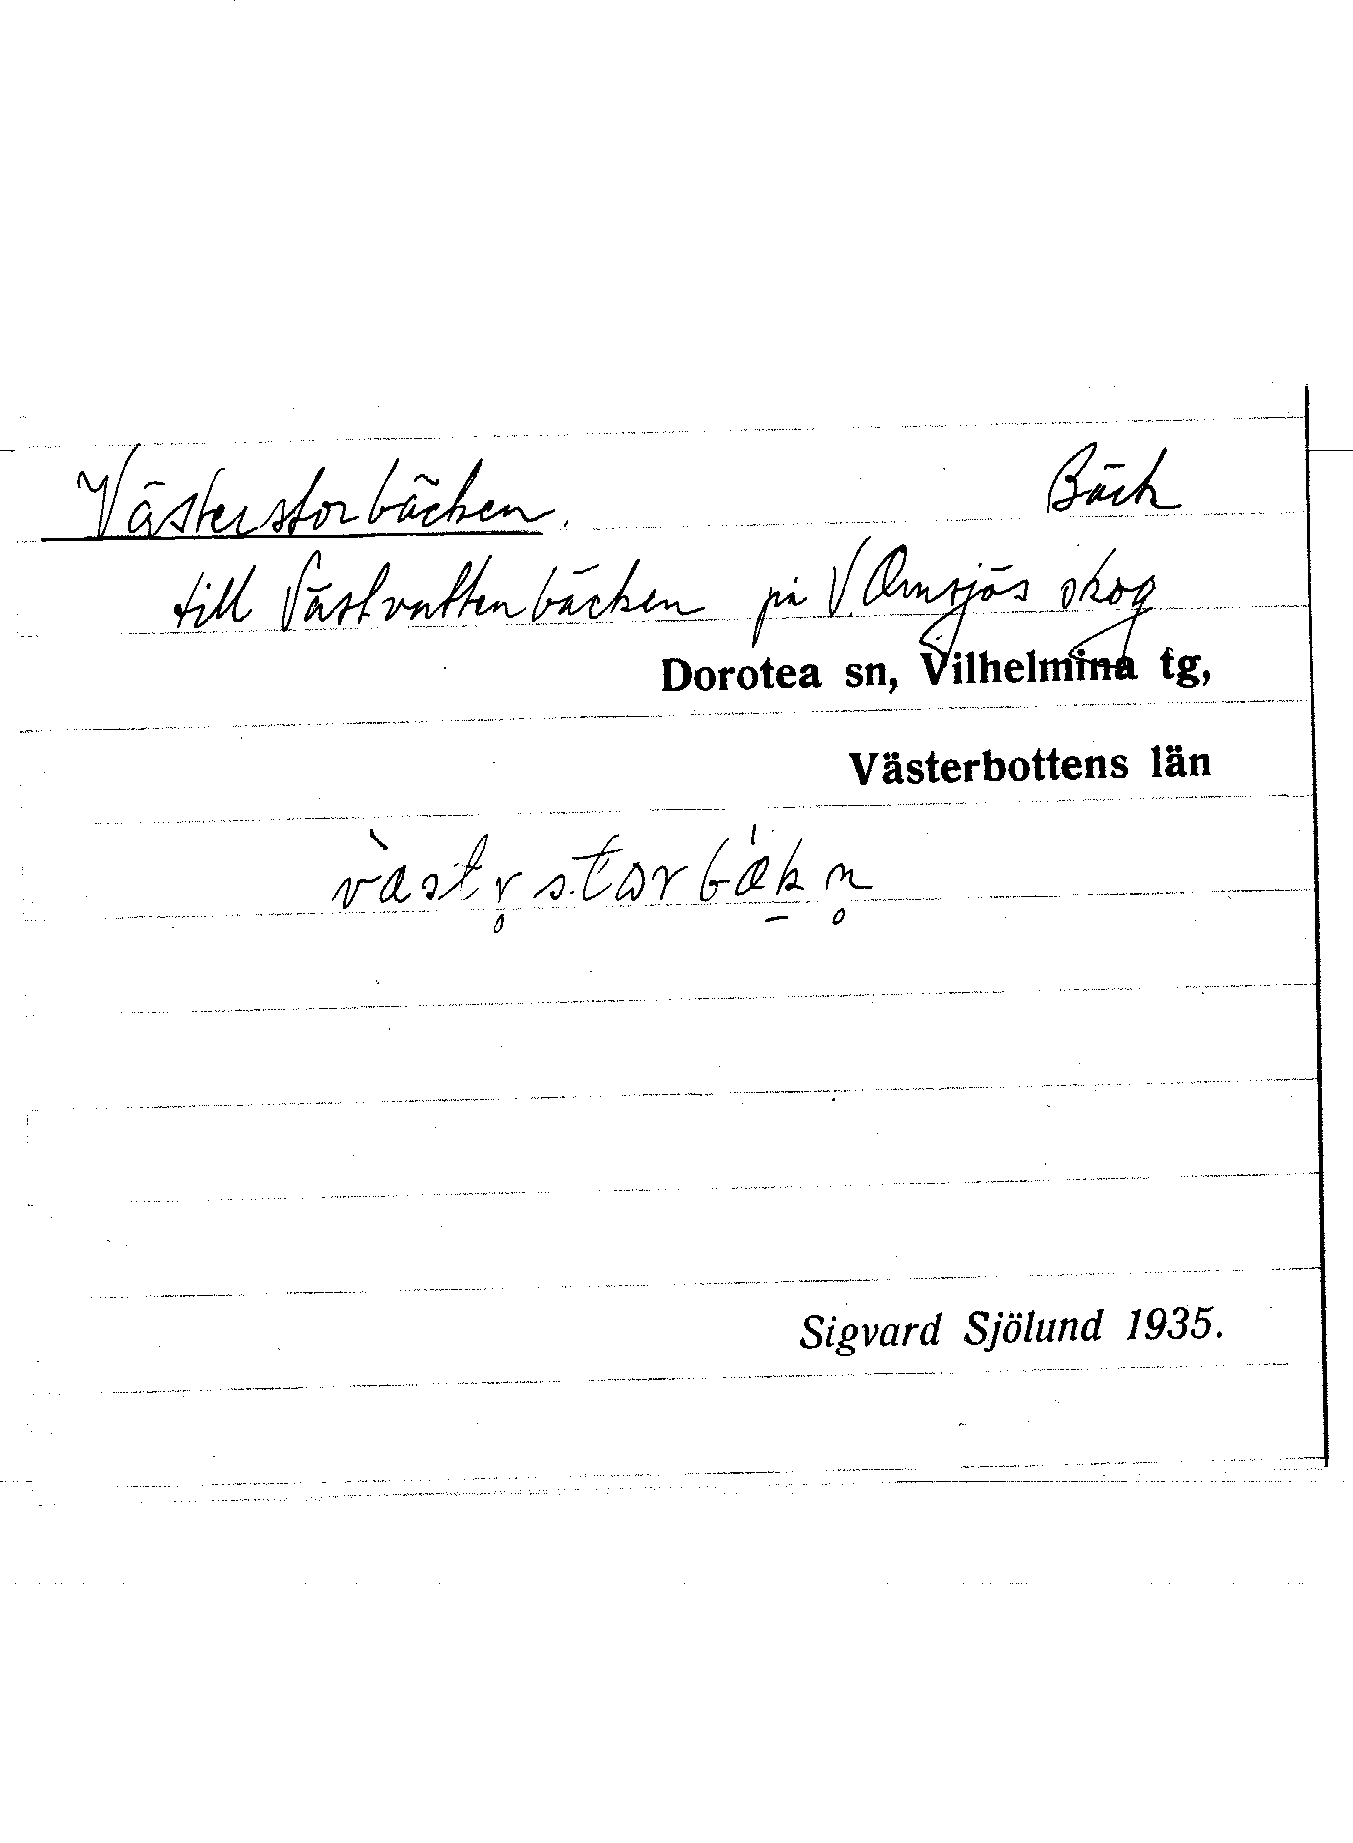 Västerstorbäcken. Bäck
till Västvattenbäcken på V. Ormsjös skog
Dorotea sn, Vilhelmina tg,
Västerbottens län
v̀æstr̥storbæ̍k̠n̥
Sigvard Sjölund 1935.